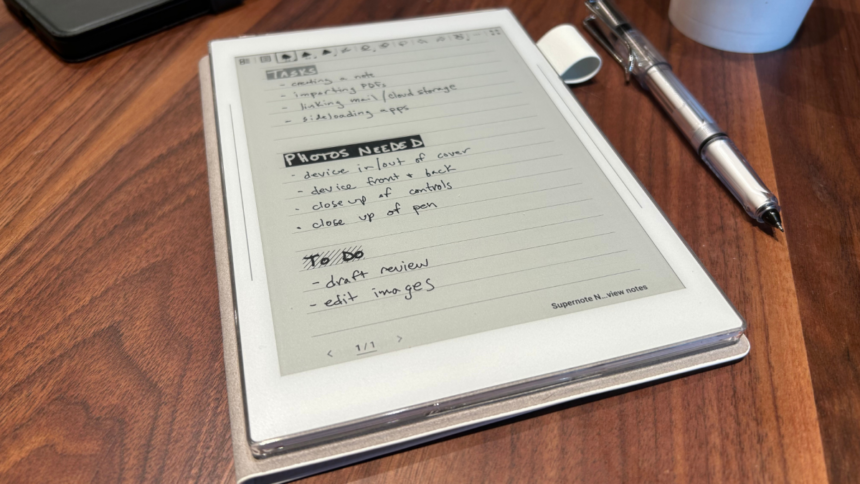 TASKS
- creating a note
- importing PDFs
- linking mail/cloud storage
- sideloading apps
PHOTOS NEEDED
- device in/out of cover
- device front + back
- close up of controls
- close up of pen
TO DO
- draft review
- edit images
Supernote N...view notes
< 1/1 >